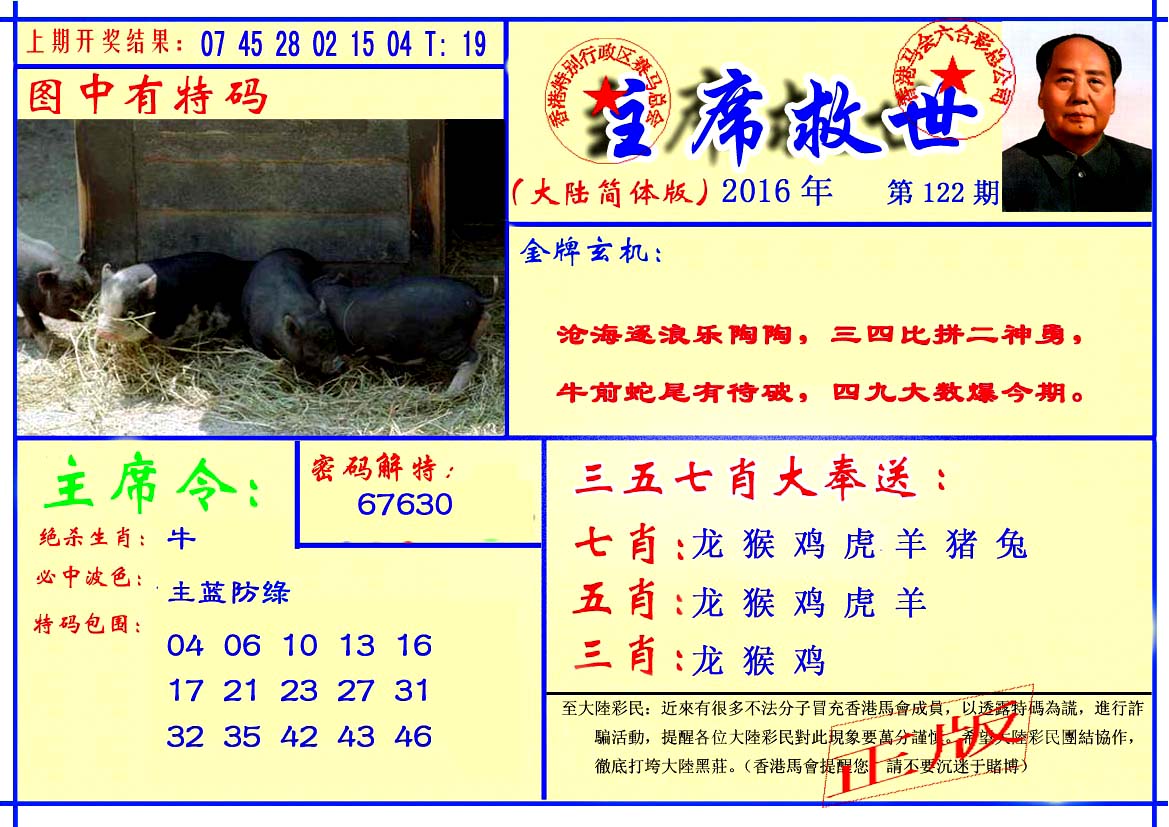 上期开奖结果：07 45 28 02 15 04 T：19
图中有特码
香港特别行政区赛马总会
香港马会六合彩总公司
主席救世
（大陆简体版）2016年 第122期
金牌玄机：
沧海逐浪乐陶陶，三四比拼二神勇，
牛前蛇尾有待破，四九大数爆今期。
主席令：
绝杀生肖：牛
必中波色：主蓝防绿
特码包围：
04 06 10 13 16
17 21 23 27 31
32 35 42 43 46
密码解特：
67630
三五七肖大奉送：
七肖：龙 猴 鸡 虎 羊 猪 兔
五肖：龙 猴 鸡 虎 羊
三肖：龙 猴 鸡
至大陸彩民：近來有很多不法分子冒充香港馬會成員，以透露特碼為謊，進行詐
騙活動，提醒各位大陸彩民對此現象要萬分謹慎。希望大陸彩民團結協作，
徹底打垮大陸黑莊。（香港馬會提醒您 請不要沉迷于賭博）
正版